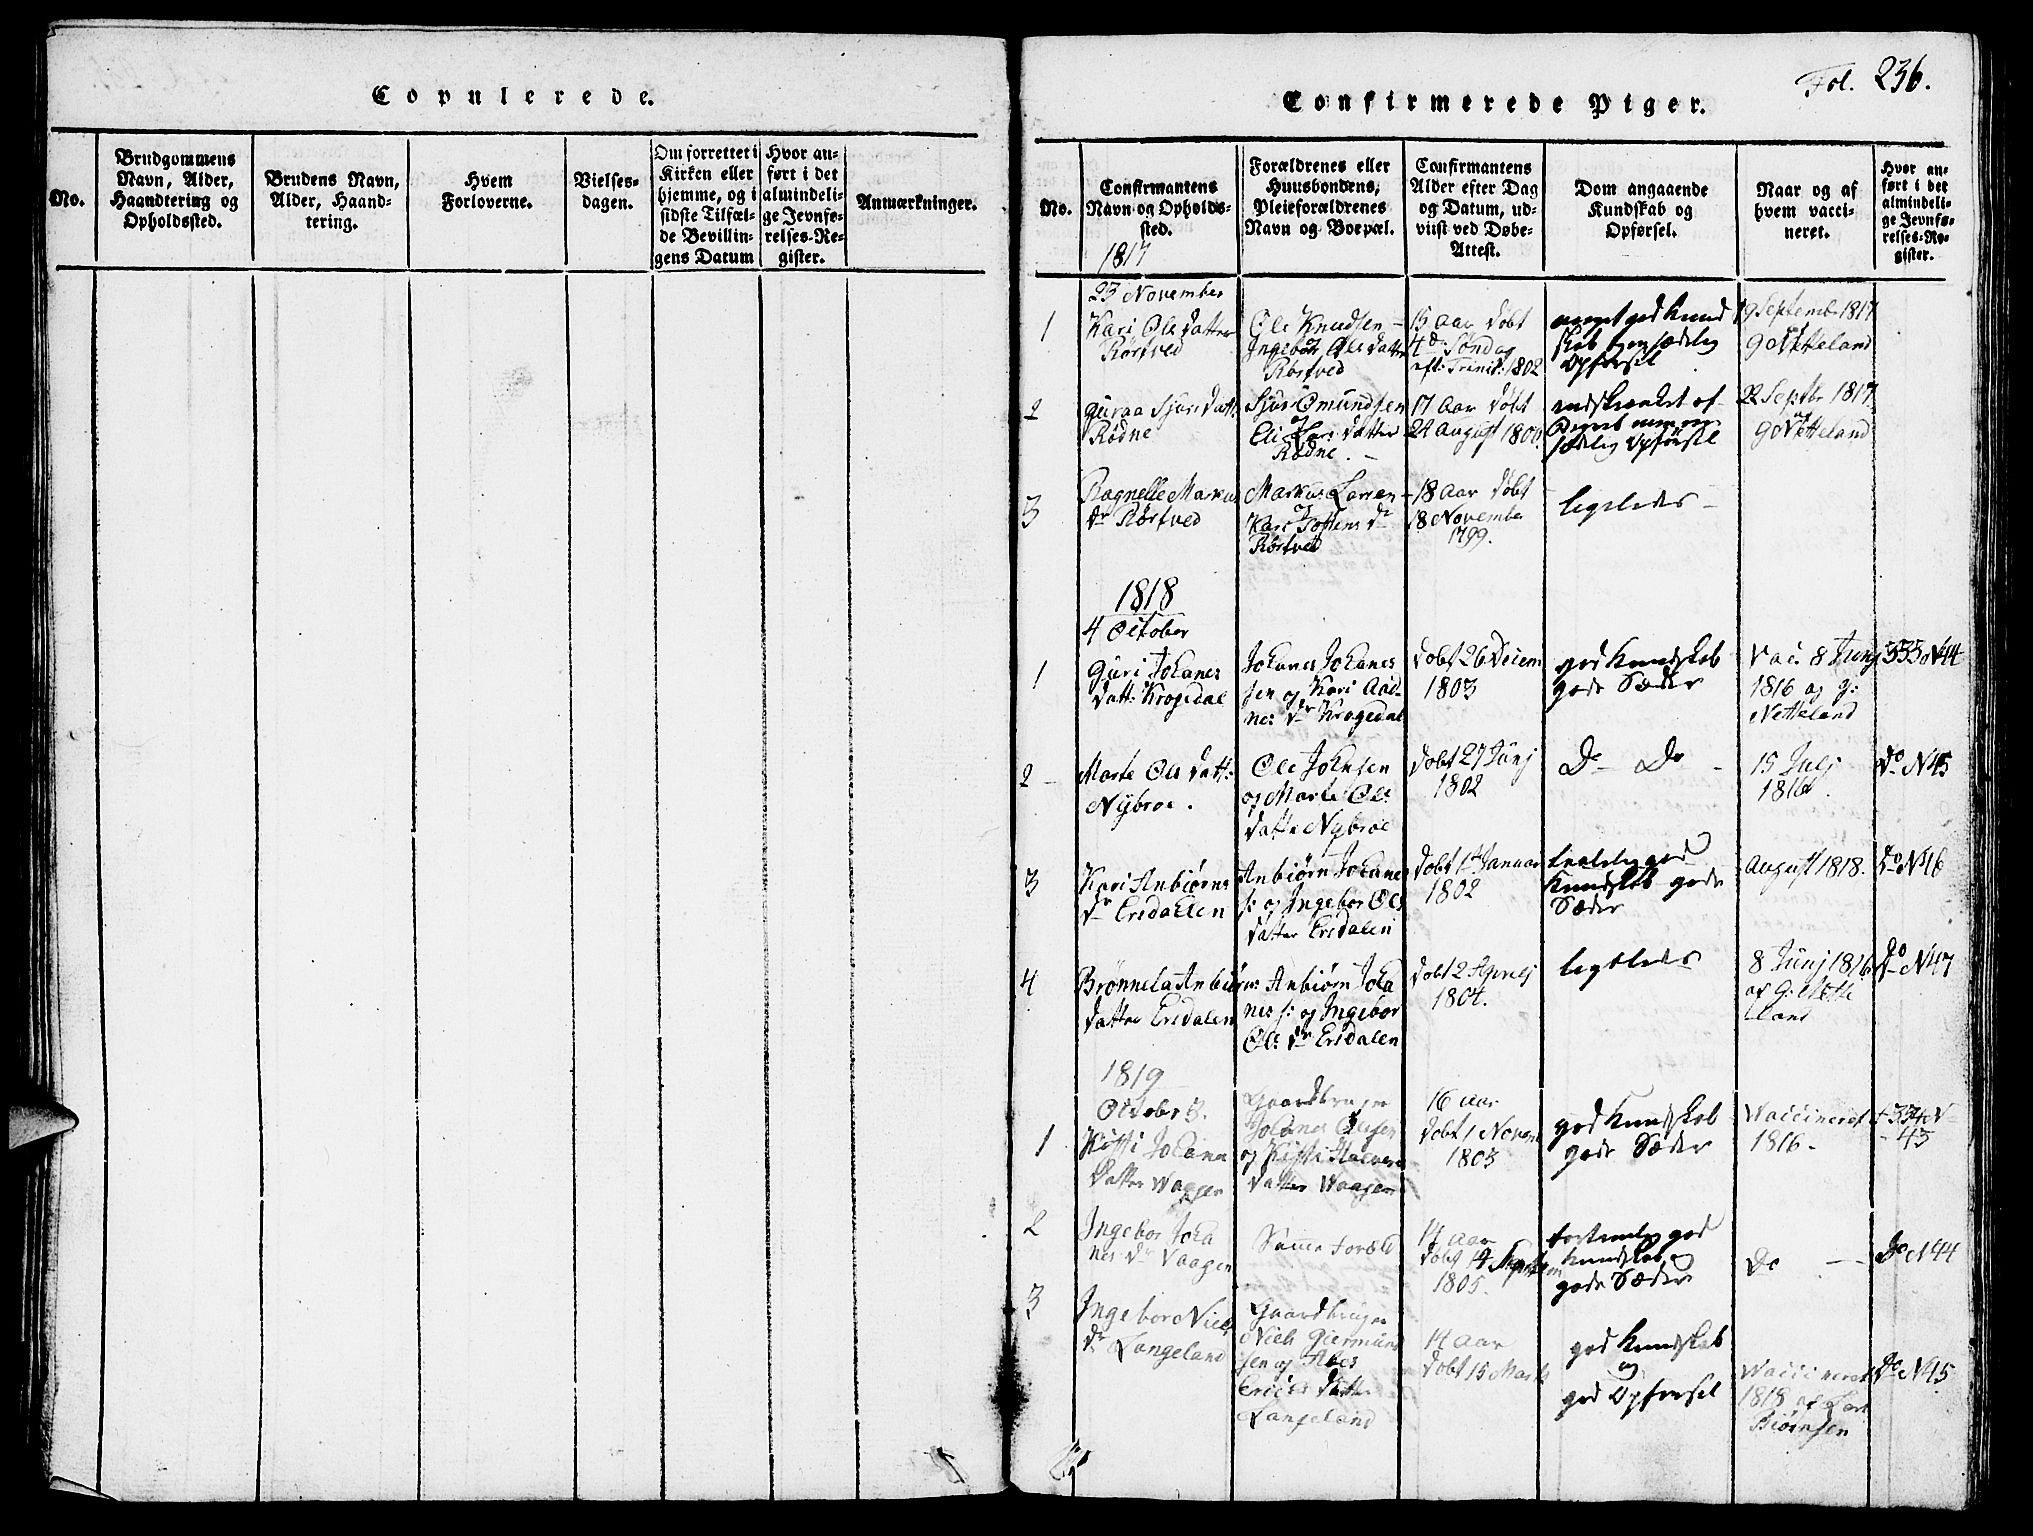 Copulerede.
No.
Brudgommens
Navn, Alder,
Haandtering og
Opholdssted.
Brudens Navn,
Alder, Haand-
tering.
Hvem
Forloverne.
Vielses-
dagen.
Om forrettet i
Kirken eller
hjemme, og i
sidste Tilfæl-
de Bevillin-
gens Datum
Hvor an-
ført i det
almindeli-
ge Jevnfø-
relses-Re-
gister.
Anmærkninger.
Fol. 236.
Confirmerede Piger.
No.
Confirmantens
Navn og Opholds-
sted.
Forældrenes eller
Huusbondens,
Pleieforældrenes
Navn og Boepæl.
Confirmantens
Alder efter Dag
og Datum, ud-
viist ved Døbe-
Attest.
Dom angaaende
Kundskab og
Opførsel.
Naar og af
hvem vacci-
neret.
Hvor an-
ført i det
almindeli-
ge Jevnfø-
relses-Re-
gister.
1817
23 November
1
Kari Ols Datter
Rørtved
Ole Knudsen
Ingebor Ols Datter
Rørtved
15 Aar døbt
4de Søndag
eft: Trinit: 1802
meget god Kund
skab og sædelig
Opførsel
19 Septemb 1817
g Netteland
2
Guraa Sjurs Datt:
Rødne
Sjur Omundsen
Eli Lars Datter
Rødne
17 Aar døbt
24 August 1800
indskrænket af
sædelig Opførsel
22 Septbr 1817
g Netteland
3
Ragnelle Markus
Dr Rørtved
Markus Larsen
Kari Dr
Rørtved
18 Aar døbt
18 November
1799.
ligeledes
1818
4 October
1
Guri Johanes
Datt: Krogedal
Johanes Johanes
sen og Kari Aad
nes Dr Krogedal
døbt 26 Decem
1803
god Kundskab
gode Sæder
Vac. 8 Junj
1816 af g:
Netteland
335 N44
2
Marte Ols Datt:
Nÿbroe.
Ole Johnsen
og Marte Ols
Datter Nybroe
døbt 27 Junj
1802
Do Do
15 Julj
1816.
Do N45
3
Kari Anbiørns
Dr Eredalen
Anbiørn Johanes
s: og Ingebor Ols
datter Eredalen
døbt 1 Januar
1802
Kundskab gode
Sæder
August 1818.
Do N46
4
Brønnela Anbiørns
datter Eredalen
Anbiørn Joha
nes s: og Ingebor
Ols Dr Eredalen
døbt 2 Aprilj
1804.
ligeledes
8 Junj 1816
af g: Nette
land
Do N47
1819
October 3.
1
Kisti Johanes
Datter Vaagen
Gaardbruger
Johanes Olesen
og Kisti Halvers
datter Vaagen
16 Aar
døbt 1 Novem
1803
god Kundskab
gode Sæder
Vaccineret
1816.
334 N
43
2
Ingebor Joha
nes Dr Vaagen
Samme Foræld
14 Aar
døbt 14 Septem
1805.
god
Kundskab og
gode Sæder
Do
Do N44
3
Ingebor Niels
Dr Langeland
Gaardbruger
Niels Giermund
sen og
Erics Datter
Langeland
14 Aar
døbt 15 Marts
god Kundskab
og
god Opførsel
Vaccineret
1818 af Lars
Biørnsen
Do N45